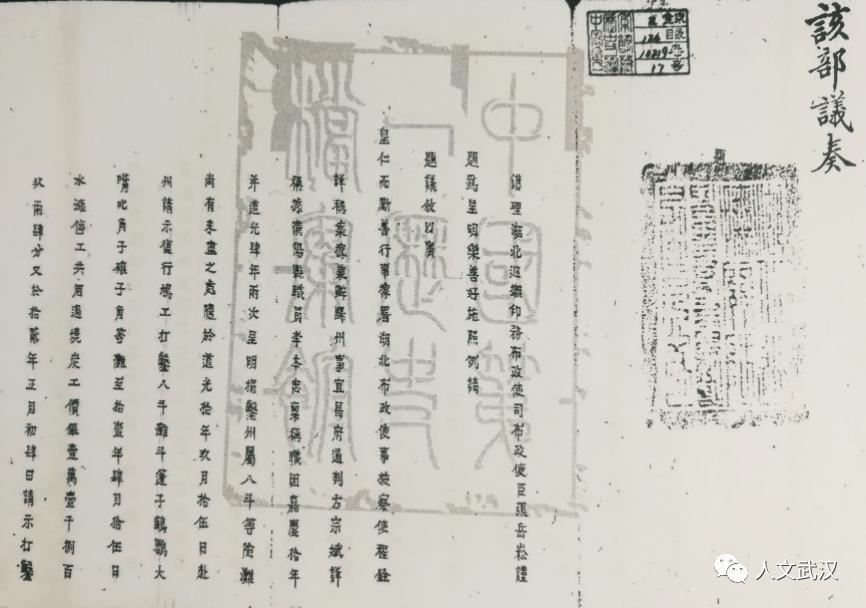 該部議奏
題
護理湖北巡撫印務布政使司布政使臣張岳崧謹
題爲呈明樂善好施照例請
題議敘以廣
皇仁而勵善行事據署湖北布政使事按察使程銓
詳稱案據兼歸州事宜昌府通判方宗斌詳
稱據漢陽縣職員李本忠稟稱職因嘉慶拾年
并道光肆年兩次呈明捐鑿州屬八斗等險灘
尚有未盡之處隨於道光拾年玖月拾伍日赴
州請示復行鳩工打鑿八斗灘斗篷子鶴鸚大
嘴叱角子雄子角等灘至拾壹年肆月拾伍日
水漲停工共用過燒炭工價銀壹萬壹千捌百
玖兩肆分又於拾貳年正月初肆日請示打鑿
中國第一歷史檔案館
124
10219
17
人文武汉